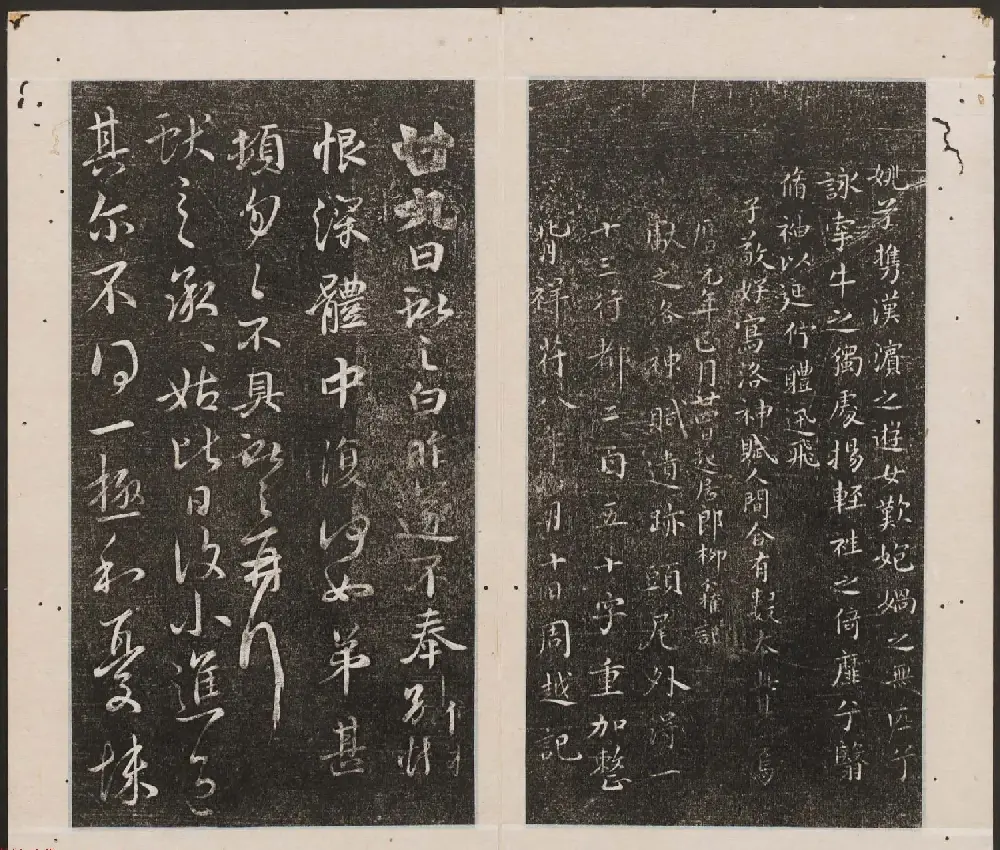 姚兮攜漢濱之遊女歎匏媧之無匹兮
詠牽牛之獨處揚輕袿之倚靡兮翳
脩袖以延佇體迅飛
子敬好寫洛神賦人間合有數本此其一焉
曆元年正月廿四日起居郎柳公權記
獻之洛神賦遺跡頭尾外得一
十三行都二百五十字重加整
背祥符八年月十日周越記
廿九日獻之白昨遂不奉別悵
恨深體中復何如弟甚
頓勿々不具獻之再拜
獻之承姑比日復小進退
其尔不得一極和憂悚